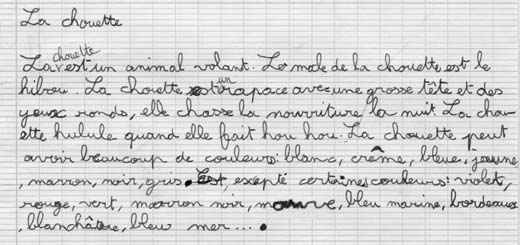 La chouette
La chouette est un animal volant. Le male de la chouette est le
hibou. La chouette est un rapace avec une grosse tête et des
yeux ronds, elle chasse la nourriture la nuit. La chou-
ette hulule quand elle fait hou hou. La chouette peut
avoir beaucoup de couleurs: blanc, crême, bleue, jaune
, marron, noir, gris. Est excepté certaines couleurs: violet,
rouge, vert, marron noir, mauve, bleu marine, bordeaux
, blanchâtre, bleu mer....